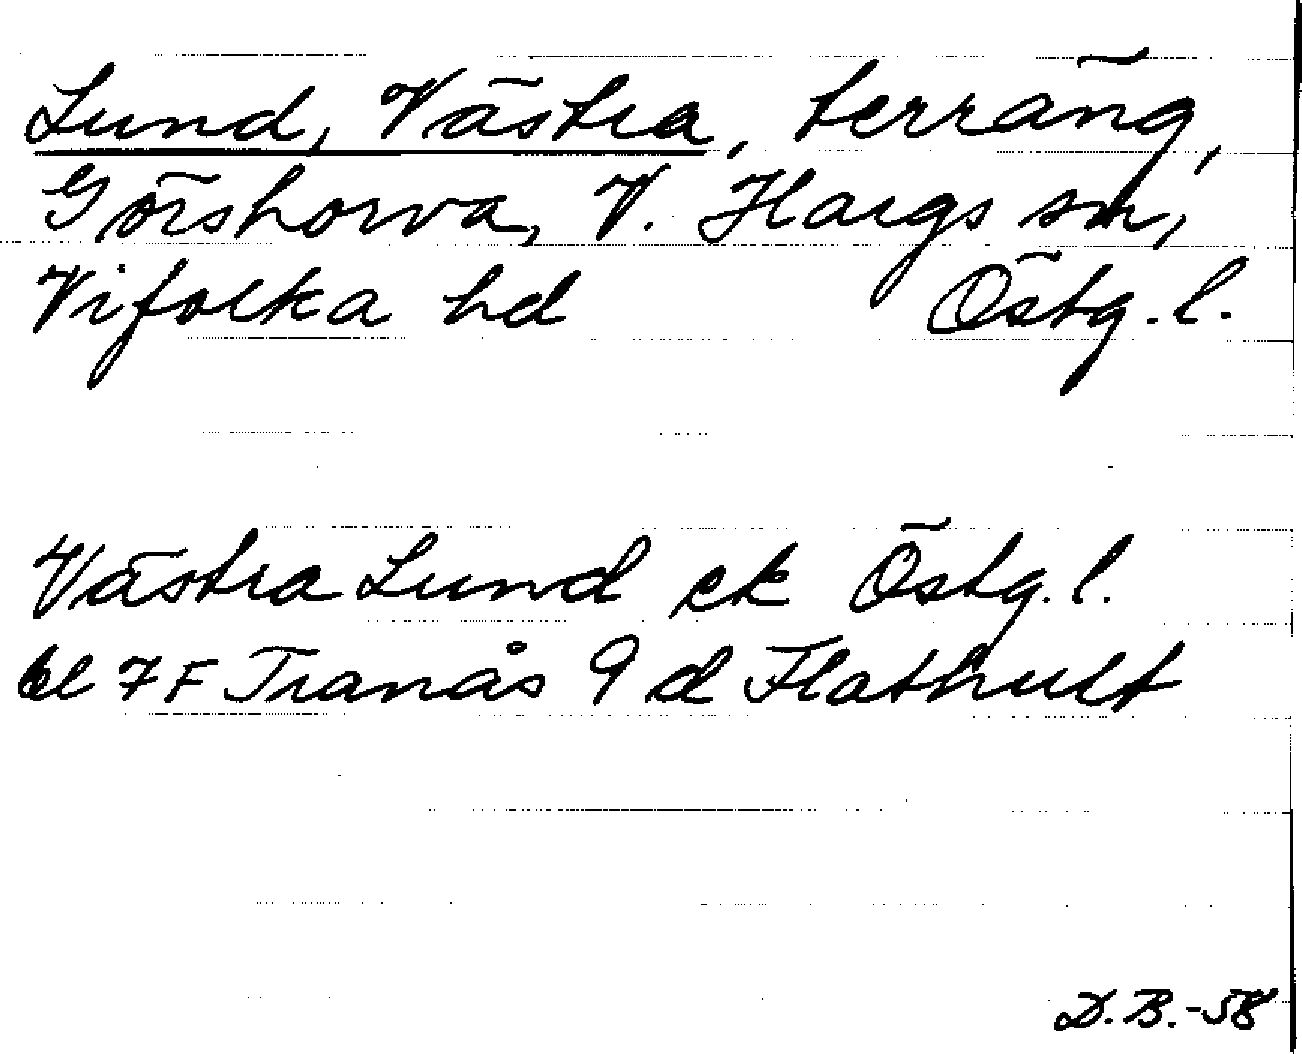 Lund, Västra, terräng,
Görshorva, V. Hargs sn,
Vifolka hd Östg. l.
Västra Lund ek Östg. l.
bl 7 F Tranås 9 d Flathult
D. B. -58